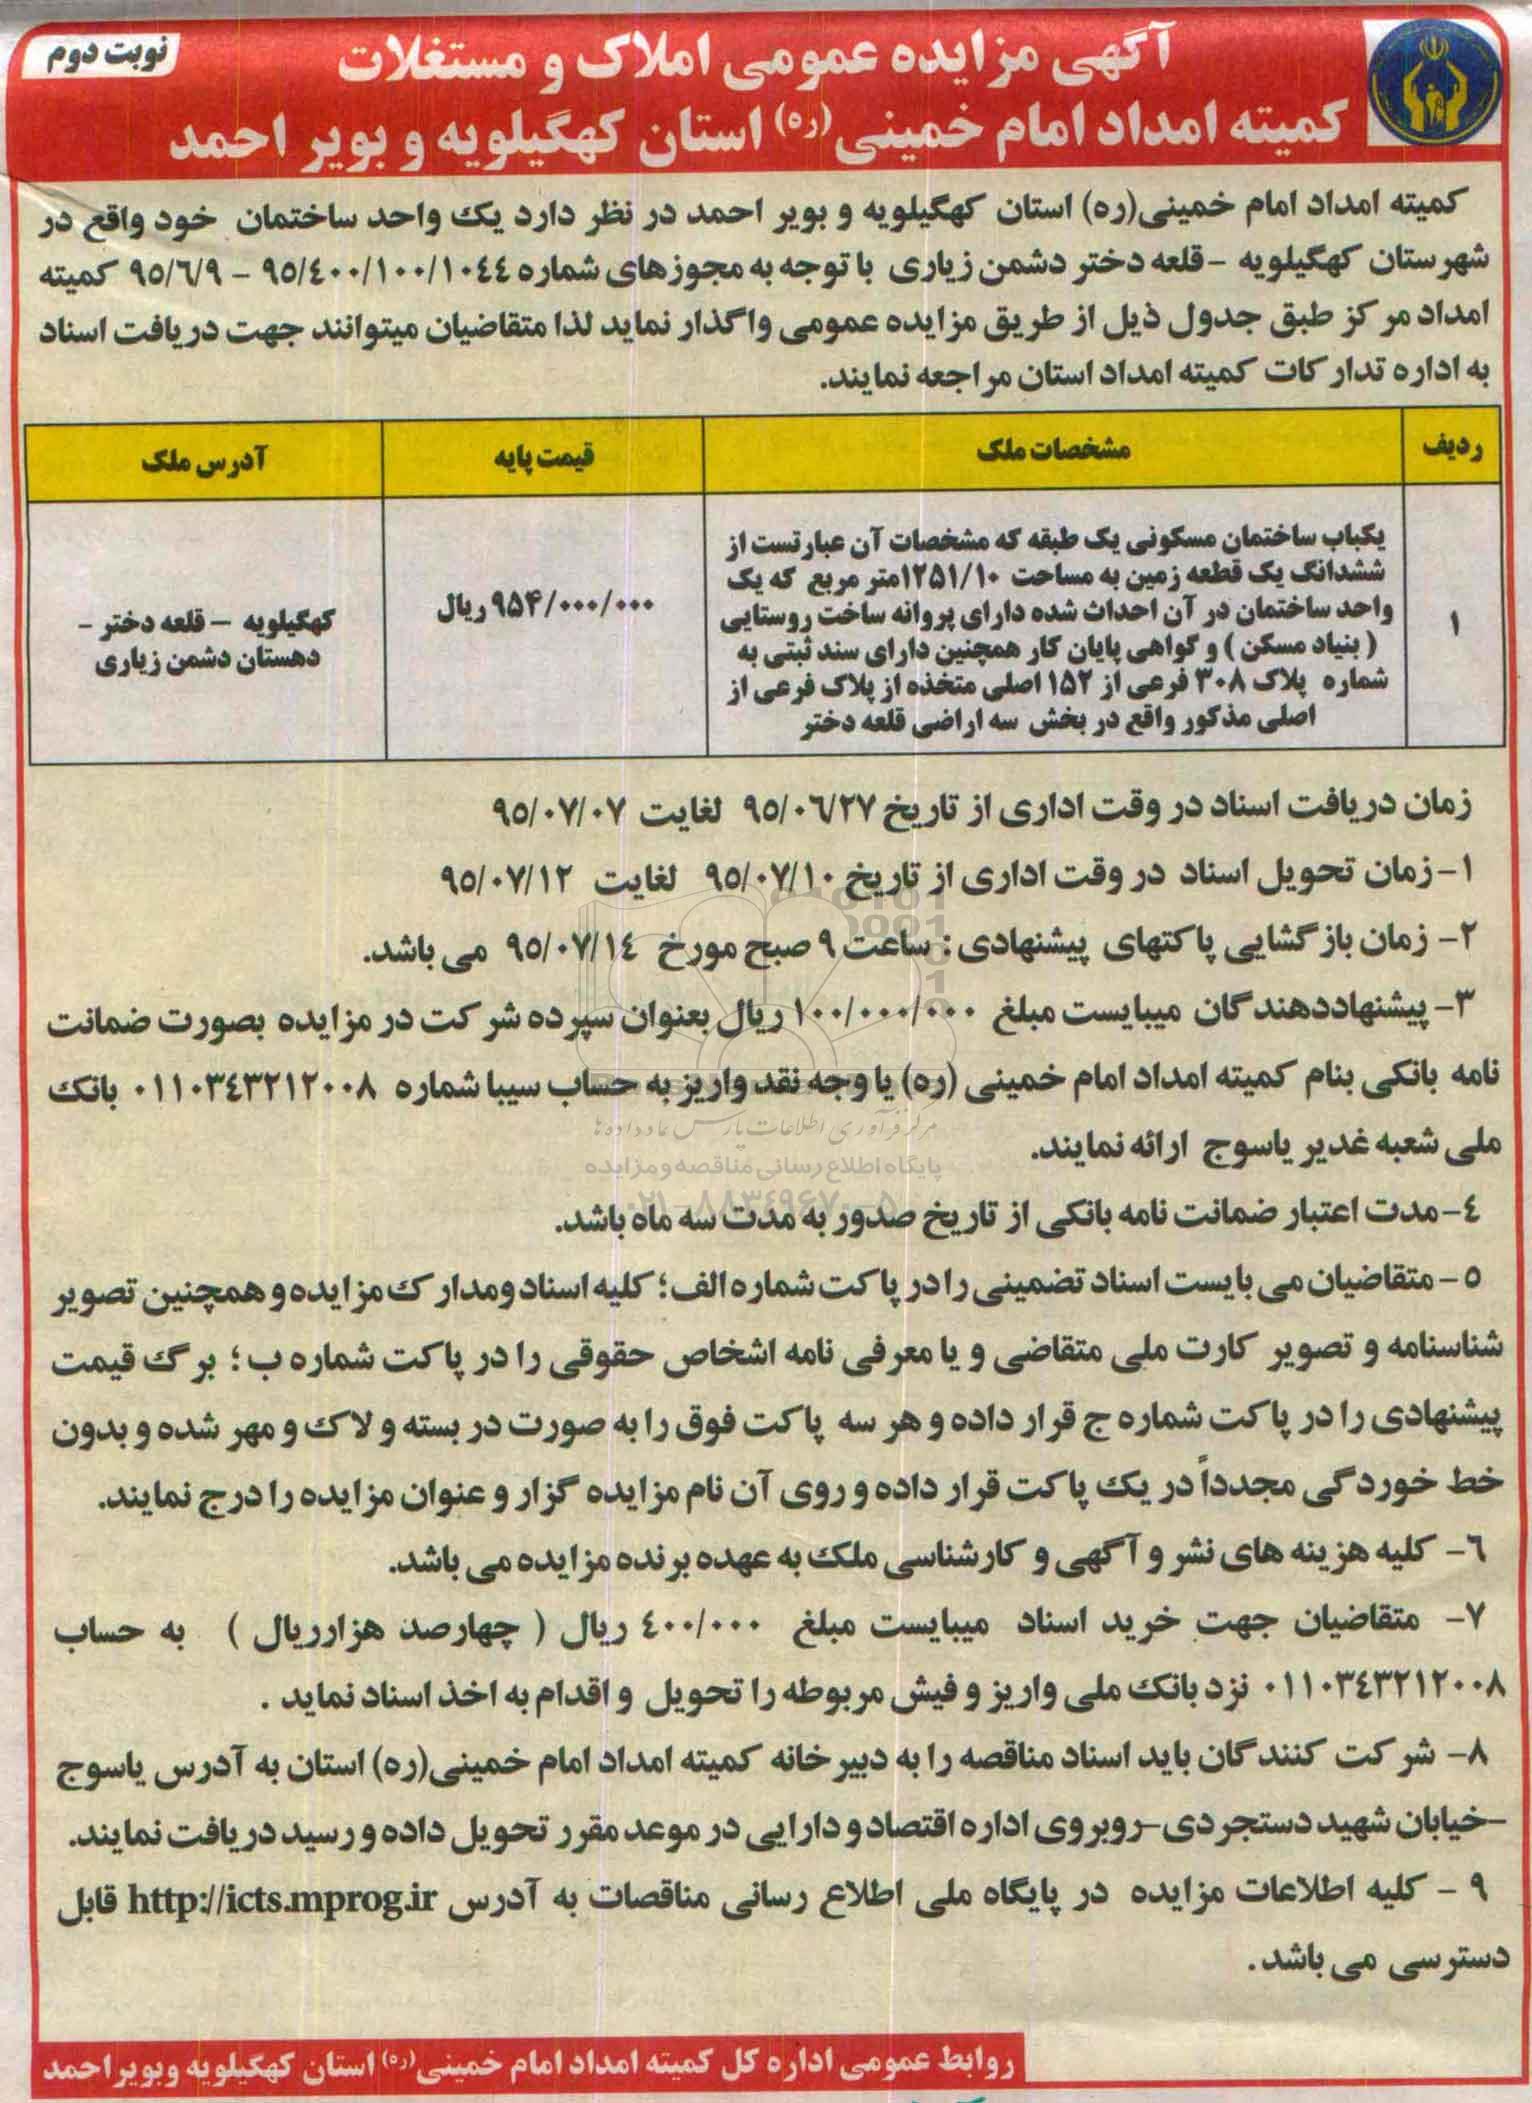 نوبت دوم
آگهی مزایده عمومی املاک و مستغلات
کمیته امداد امام خمینی (ره) استان کهگیلویه و بویر احمد
کمیته امداد امام خمینی(ره) استان کهگیلویه و بویر احمد در نظر دارد یک واحد ساختمان خود واقع در
شهرستان کهگیلویه -قلعه دختر دشمن زیاری با توجه به مجوزهای شماره ۹۵/۴۰۰/۱۰۰/۱۰۴۴ - ۹۵/۶/۹ کمیته
امداد مرکز طبق جدول ذیل از طریق مزایده عمومی واگذار نماید لذا متقاضیان میتوانند جهت دریافت اسناد
به اداره تدارکات کمیته امداد استان مراجعه نمایند.
ردیف مشخصات ملک قیمت پایه آدرس ملک
یکباب ساختمان مسکونی یک طبقه که مشخصات آن عبارتست از
ششدانگ یک قطعه زمین به مساحت ۱۲۵۱/۱۰متر مربع که یک
واحد ساختمان در آن احداث شده دارای پروانه ساخت روستایی
( بنیاد مسکن ) و گواهی پایان کار همچنین دارای سند ثبتی به
شماره پلاک ۳۰۸ فرعی از ۱۵۲ اصلی متخذه از پلاک فرعی از
اصلی مذکور واقع در بخش سه اراضی قلعه دختر
۱
۹۵۴/۰۰۰/۰۰۰ ریال
کهگیلویه - قلعه دختر -
دهستان دشمن زیاری
زمان دریافت اسناد در وقت اداری از تاریخ ۹۵/۰۶/۲۷ لغایت ۹۵/۰۷/۰۷
۱-زمان تحویل اسناد در وقت اداری از تاریخ ۹۵/۰۷/۱۰ لغایت ۹۵/۰۷/۱۲
۲- زمان بازگشایی پاکتهای پیشنهادی : ساعت ۹ صبح مورخ ۹۵/۰۷/۱۴ می باشد.
۳- پیشنهاددهندگان میبایست مبلغ ۱۰۰/۰۰۰/۰۰۰ ریال بعنوان سپرده شرکت در مزایده بصورت ضمانت
نامه بانکی بنام کمیته امداد امام خمینی (ره) یا وجه نقد واریز به حساب سیبا شماره ۰۱۱۰۳۴۳۲۱۲۰۰۸ بانک
ملی شعبه غدیر یاسوج ارائه نمایند.
مرکز فرآوری اطلاعات پارس نماد داده ها
پایگاه اطلاع رسانی مناقصه و مزایده
۰۲۱-۸۸۳۴۹۶۷۰-۵
۴-مدت اعتبار ضمانت نامه بانکی از تاریخ صدور به مدت سه ماه باشد.
۵-متقاضیان می بایست اسناد تضمینی را در پاکت شماره الف؛ کلیه اسناد ومدارک مزایده و همچنین تصویر
شناسنامه و تصویر کارت ملی متقاضی و یا معرفی نامه اشخاص حقوقی را در پاکت شماره ب ؛ برگ قیمت
پیشنهادی را در پاکت شماره ج قرار داده و هر سه پاکت فوق را به صورت در بسته و لاک و مهر شده و بدون
خط خوردگی مجدداً در یک پاکت قرار داده و روی آن نام مزایده گزار و عنوان مزایده را درج نمایند.
۶- کلیه هزینه های نشر و آگهی و کارشناسی ملک به عهده برنده مزایده می باشد.
۷- متقاضیان جهت خرید اسناد میبایست مبلغ ۴۰۰/۰۰۰ ریال ( چهارصد هزارریال ) به حساب
۰۱۱۰۳۴۳۲۱۲۰۰۸ نزد بانک ملی واریز و فیش مربوطه را تحویل و اقدام به اخذ اسناد نماید .
۸- شرکت کنندگان باید اسناد مناقصه را به دبیرخانه کمیته امداد امام خمینی(ره) استان به آدرس یاسوج
-خیابان شهید دستجردی-روبروی اداره اقتصاد و دارایی در موعد مقرر تحویل داده و رسید دریافت نمایند.
۹ - کلیه اطلاعات مزایده در پایگاه ملی اطلاع رسانی مناقصات به آدرس http://icts.mprog.ir قابل
دسترسی می باشد .
روابط عمومی اداره کل کمیته امداد امام خمینی(ره) استان کهگیلویه وبویراحمد